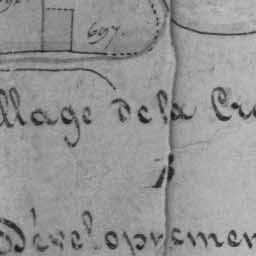 697.
illage de la Cr
B
Développemen